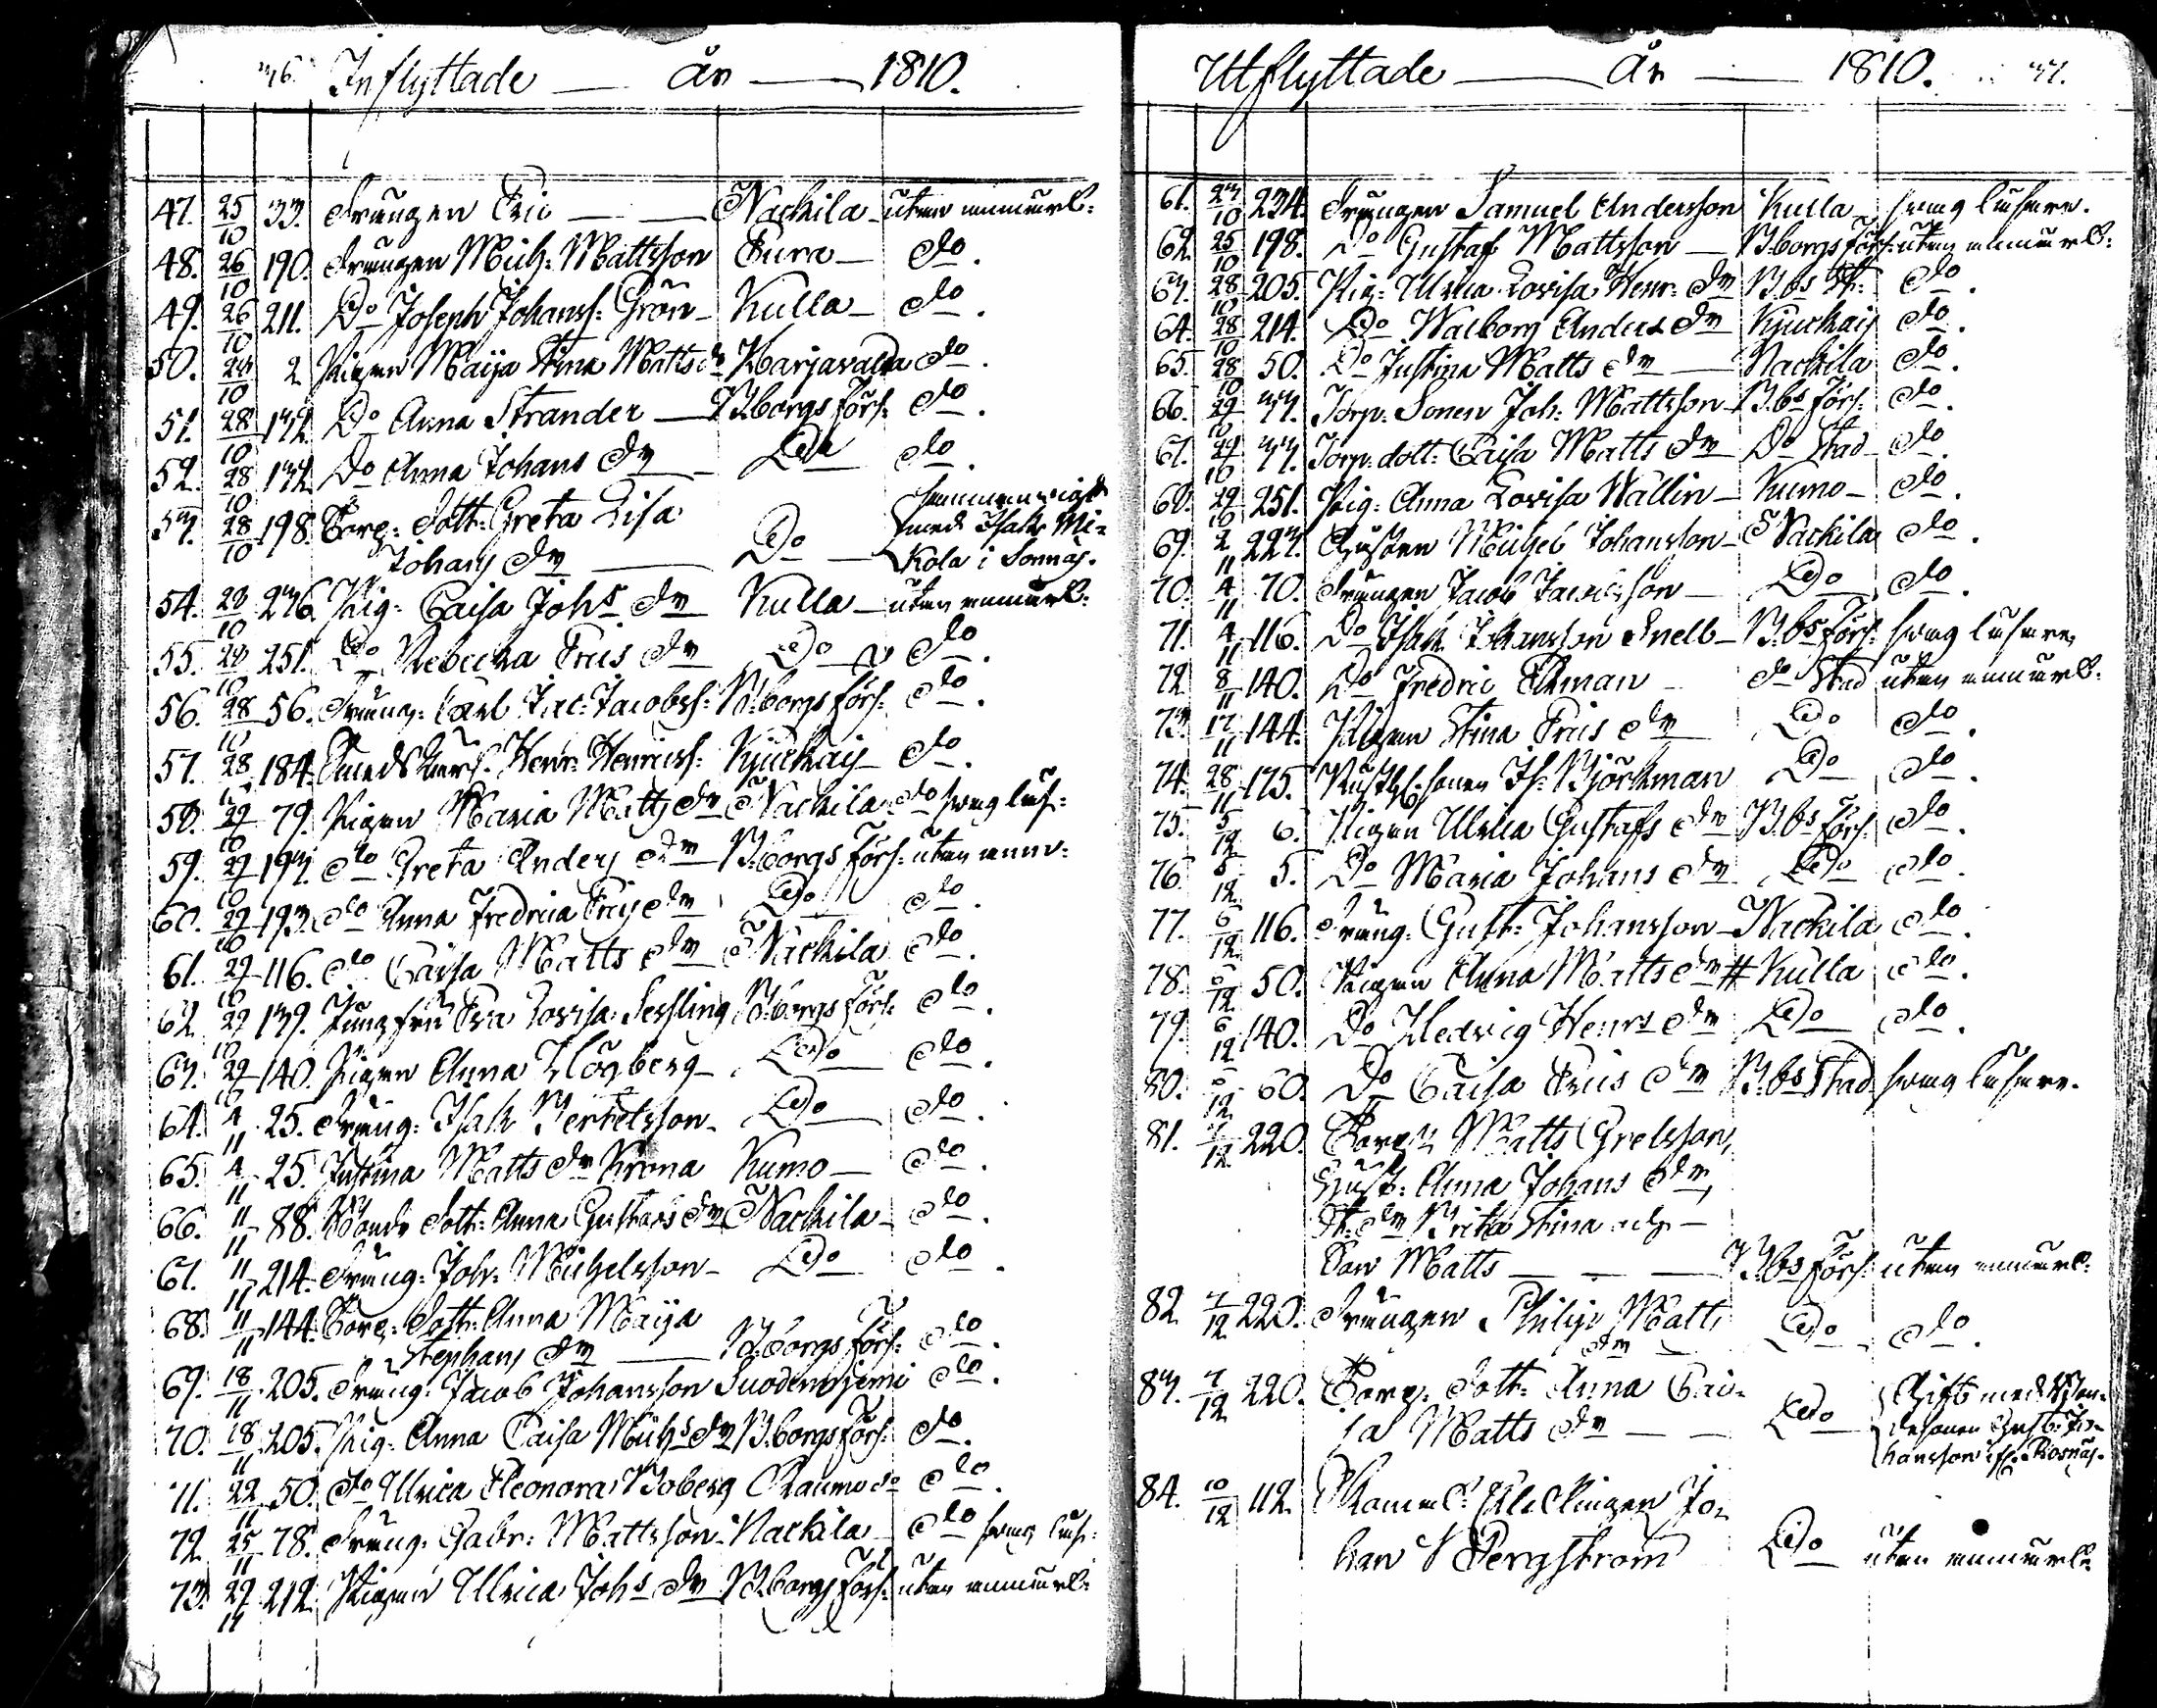 36. Inflyttade — år — 1810.
47. 25/10 33. Drängen Eric — — Nackila — utan anmärk:
48. 26/10 190. Drängen Mich: Mattsson Eura — do.
49. 26/10 211. Do Joseph Johanss: Grön — Kulla — do.
50. 28/10 2. Pigan Maija Stina Matts dr Harjavalda do.
51. 28/10 132. Do Anna Strander — B:borgs förs: do.
52. 28/10 132. Do Anna Johans dr — Do do.
53. 28/10 198. Torp: Dott: Greta Lisa
Johans dr — Do — sammanvigd med Isak Mikola i Sonnäs.
54. 28/10 236. Pig: Caisa Johs dr Kulla — utan anmärk:
55. 28/10 251. Do Rebecka Erics dr Do do.
56. 28/10 56. Dräng: Carl Jac: Jacobss: B:borgs förs: do.
57. 28/10 184. Henr: Henricss: Kjuckais do.
58. 29/10 79. Pigan Maria Matts dr Nackila do svag läs:
59. 29/10 193. do Greta Anders dr B:borgs förs: utan anm:
60. 29/10 193. do Anna Fredrica Erics dr Do do.
61. 29/10 116. do Caisa Matts dr Nackila do.
62. 29/10 139. Jungfru Eva Lovisa Sessling B:borgs förs: do.
63. 29/10 140. Pigan Anna Högberg — Do do.
64. 4/11 25. Dräng: Isak Bertelsson — Do do.
65. 4/11 25. Justina Matts dr Krona Kumo — do.
66. 11/11 88. Bonde Dott: Anna Gustafs dr Nackila — do.
67. 11/11 214. Dräng: Joh: Michelsson — Do do.
68. 11/11 144. Torp: Dott: Anna Maija
Stephans dr — B:borgs förs: do.
69. 18/11 205. Dräng: Jacob Johansson Suodenjemi do.
70. 18/11 205. Pig: Anna Caisa Michs dr B:borgs förs: do.
71. 22/11 50. do Ulrica Eleonora Boberg Raumo do.
72. 25/11 78. Dräng: Gabr: Mattsson — Nackila — do svag läs:
73. 29/11 212. Pigan Ulrica Johs dr B:borgs förs: utan anmärk:
Utflyttade — År — 1810. 37.
61. 23/10 234. Drängen Samuel Andersson Kulla svag läsare.
62. 25/10 198. Do Gustaf Mattsson — B:borgs förs: utan anmärk:
63. 28/10 205. Pig: Ulrica Lovisa Henr: dr B:bs do.
64. 28/10 214. Do Walborg Anders dr Kjuckais do.
65. 28/10 50. Do Justina Matts dr — Nackila do.
66. 29/10 33. Torp: Sonen Joh: Mattsson — B:bs förs: do.
67. 29/10 33. Torp: dott: Caisa Matts dr Do Stad do.
68. 29/10 251. Pig: Anna Lovisa Wallin — Kumo — do.
69. 2/11 223. Michel Johansson — Nackila do.
70. 4/11 70. Drängen Jacob Jacobsson — Do do.
71. 4/11 116. Do Isak Johansson Snell — B:bs förs: svag läsare,
72. 8/11 140. Do Fredric Ekman — do Stad utan anmärk:
73. 17/11 144. Pigan Stina Erics dr Do do.
74. 28/11 175. Björkman Do do.
75. 5/12 6. Pigan Ulrica Gustafs dr B:bs förs: do.
76. 5/12 5. Do Maria Johans dr Do do.
77. 6/12 116. Dräng: Gust: Johansson — Nackila do.
78. 6/12 50. Pigan Anna Matts dr # Kulla do.
79. 6/12 140. Do Hedvig Henrs dr Do do.
80. 12 60. Do Caisa Erics dr B:bs Stad svag läsare.
81. 7/12 220. Torp: Matts Grelsson,
Hust: Anna Johans dr,
Brita Stina och
Son Matts — — — B:bs förs: utan anmärk:
82. 7/12 220. Drängen Philip Matts Do do.
83. 7/12 220. Torp: Dott: Anna Cai-
sa Matts dr — — Do Gift med Bondesonen Gust: Johansson Rosnäs.
84. 10/12 112. Jo-
han Bergström Do utan anmärk: